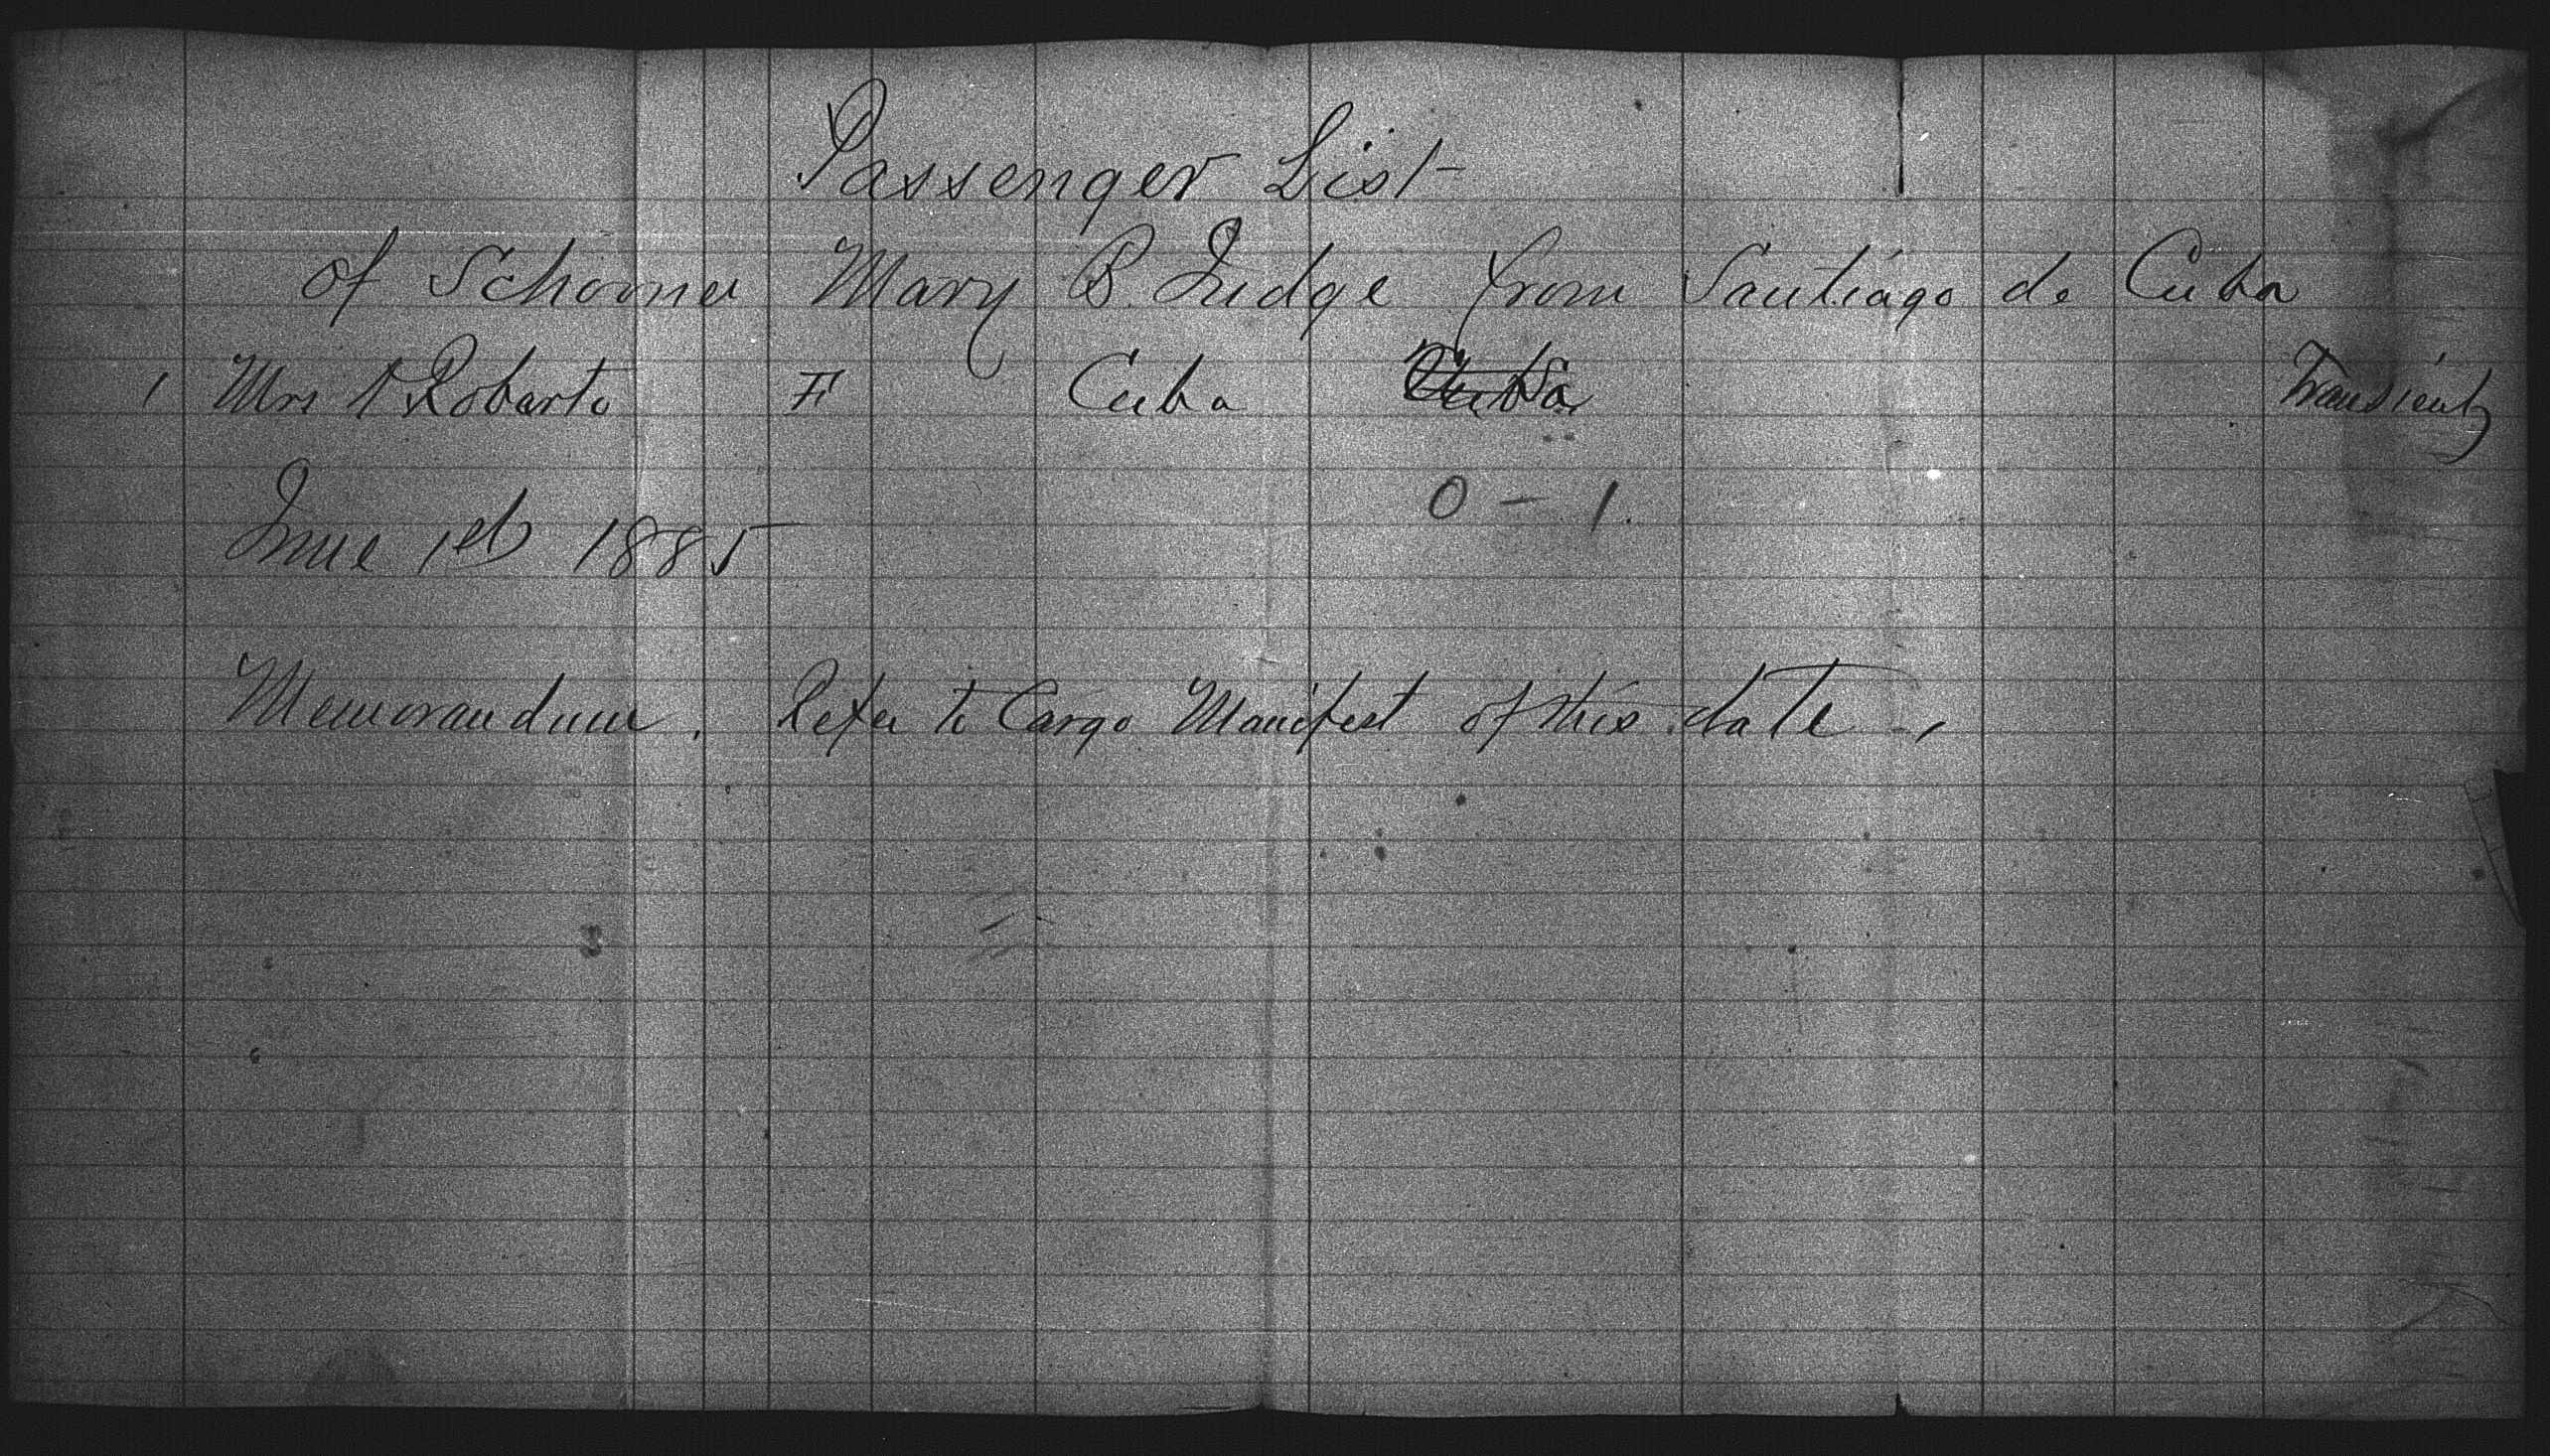 Passenger List
of Schooner Mary B. Judge from Santiago de Cuba
1 Mrs A Robarts F Cuba Transient
0 - 1.
June 1st 1885
Memorandum. Refer to Cargo Manifest of this date -,